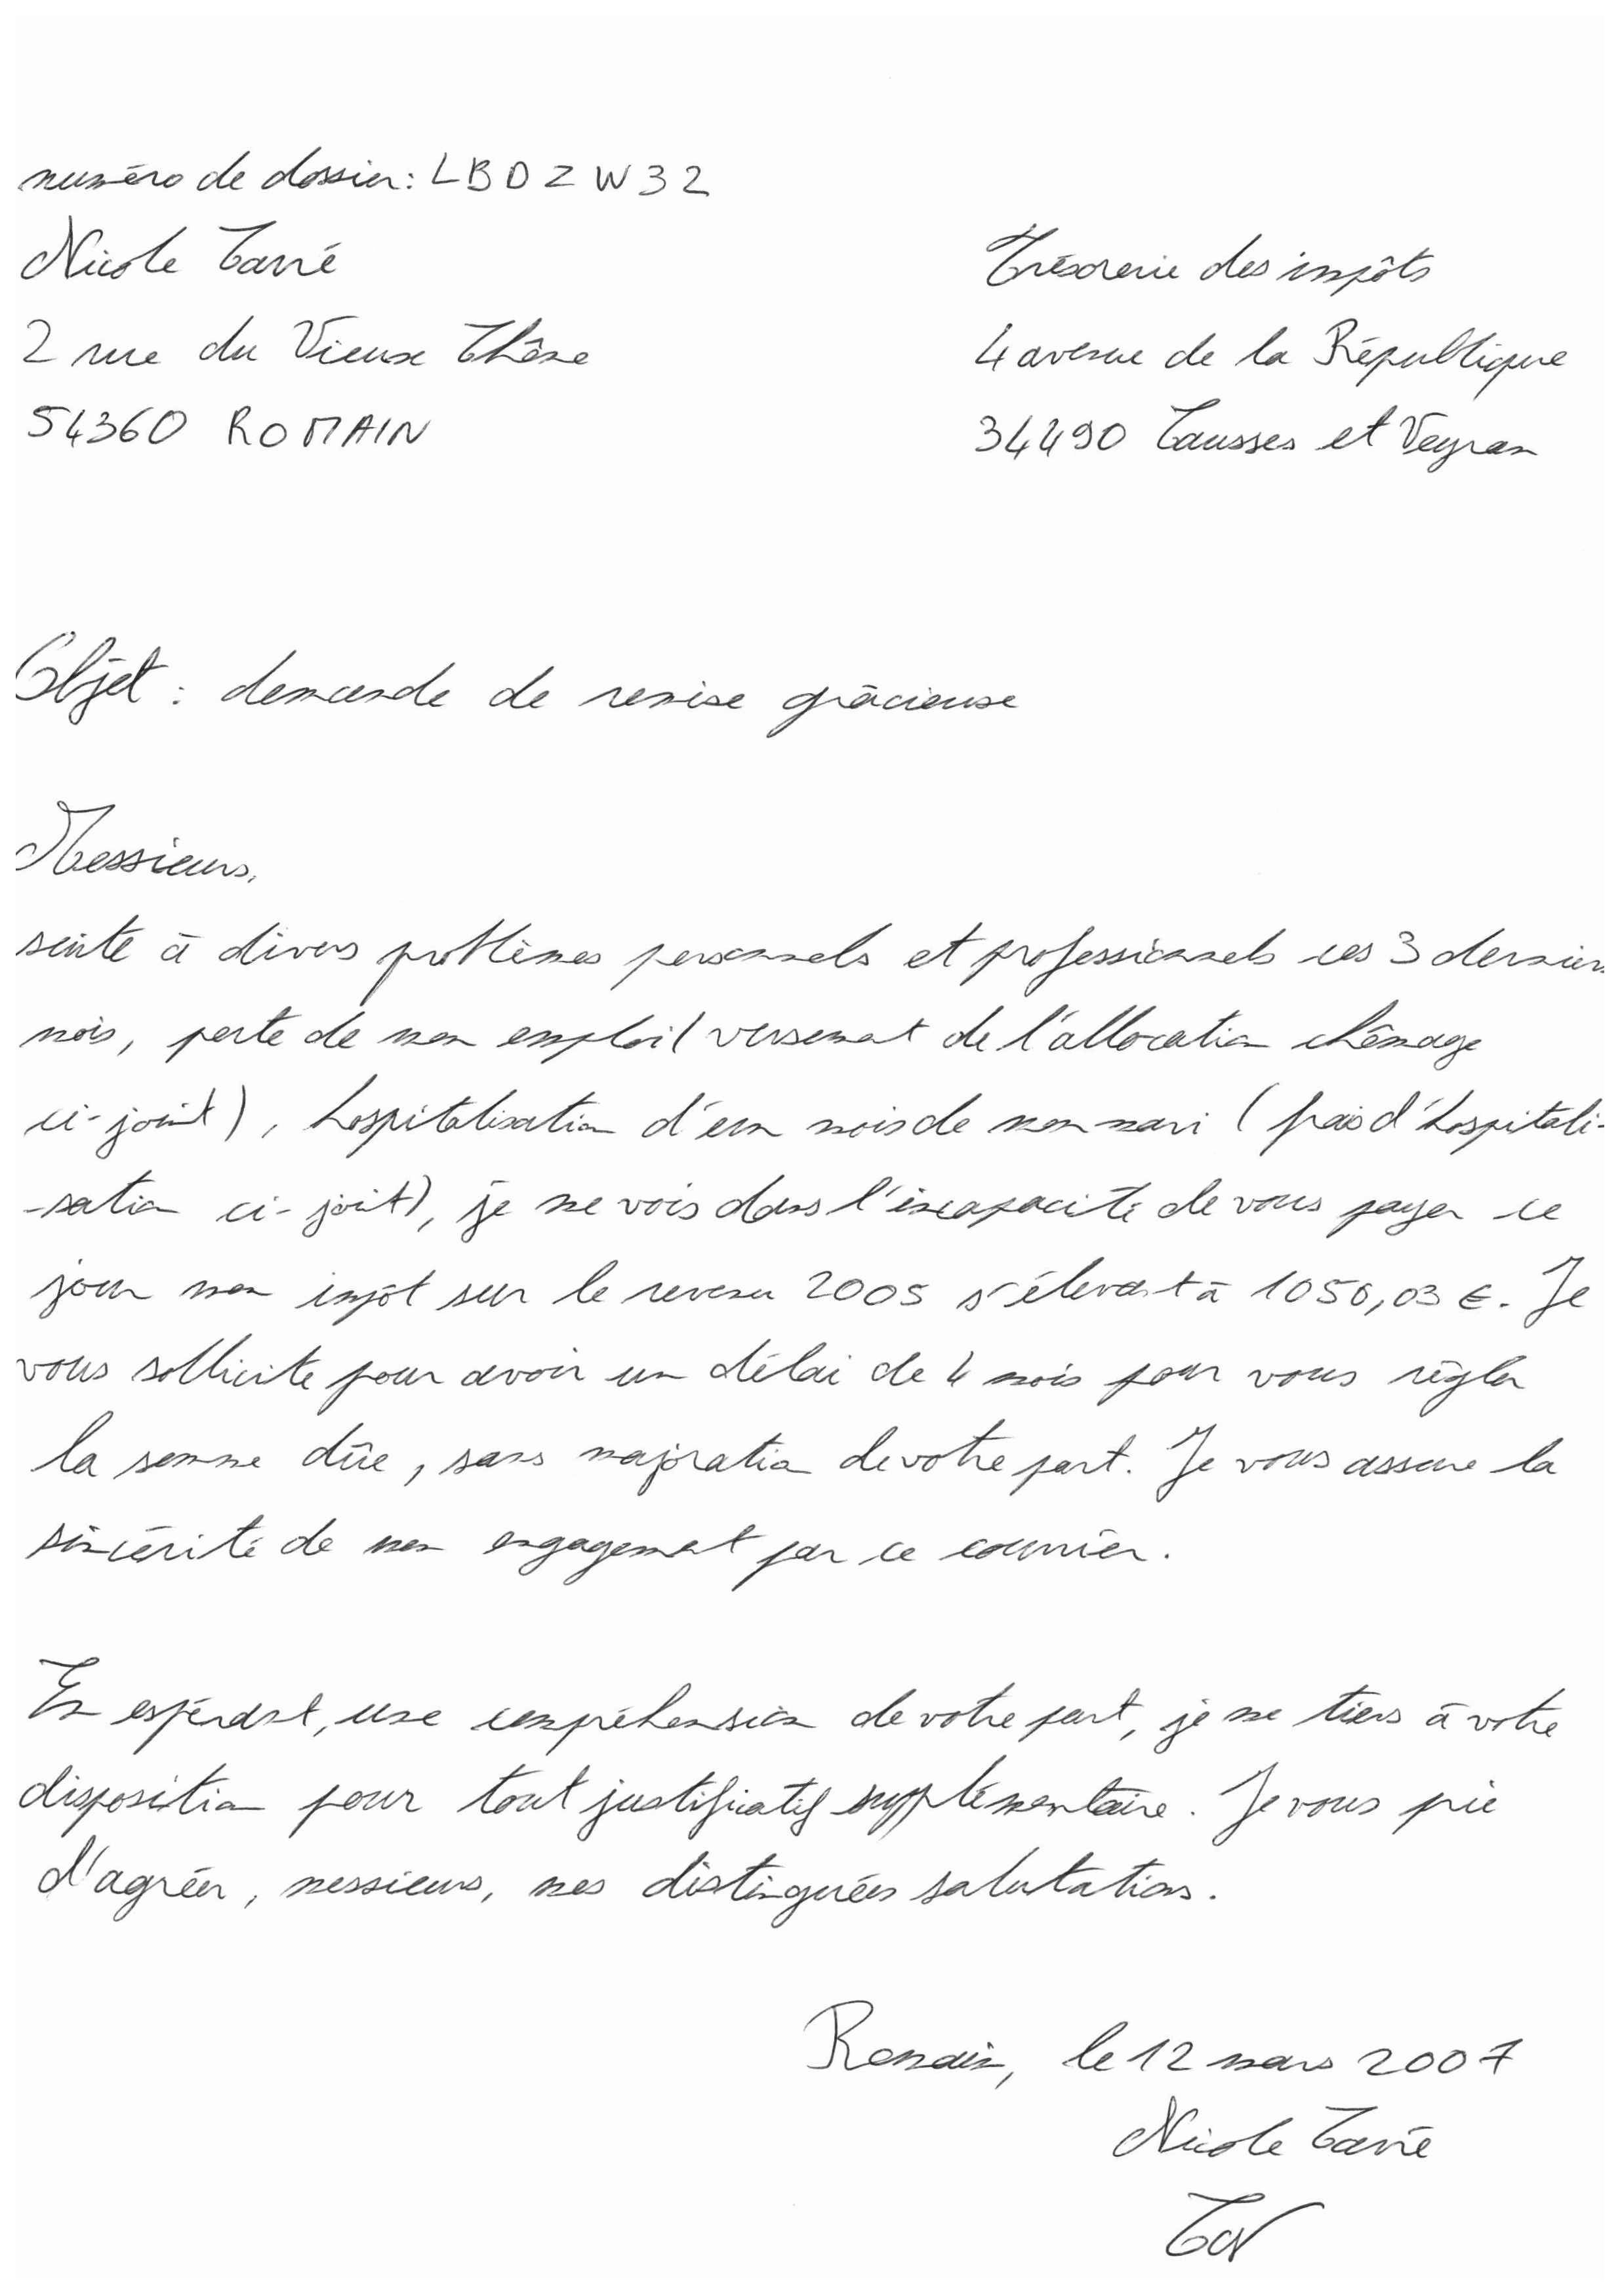 numéro de dossier : LBDZW32
Nicole Carré
2 rue du Vieux Chêne
54360 ROMAIN
Trésorerie des impôts
4 avenue de la République
34490 Causses et Veyran
Objet : demande de remise grâcieuse
Messieurs,
suite à divers problèmes personnels et professionnels ces 3 derniers
mois, perte de mon emploi (versement de l'allocation chômage
ci-joint), hospitalisation d'un mois de mon mari (frais d'hospitali-
-sation ci-joint), je me vois dans l'incapacité de vous payer ce
jour mon impôt sur le revenu 2005 s'élevant à 1050,03 €. Je
vous sollicite pour avoir un délai de 4 mois pour vous régler
la somme dûe, sans majoration de votre part. Je vous assure la
sincérité de mon engagement par ce courrier.
En espérant, une compréhension de votre part, je me tiens à votre
disposition pour tout justificatif supplémentaire. Je vous prie
d'agréer, messieurs, mes distinguées salutations.
Romain, le 12 mars 2007
Nicole Carré